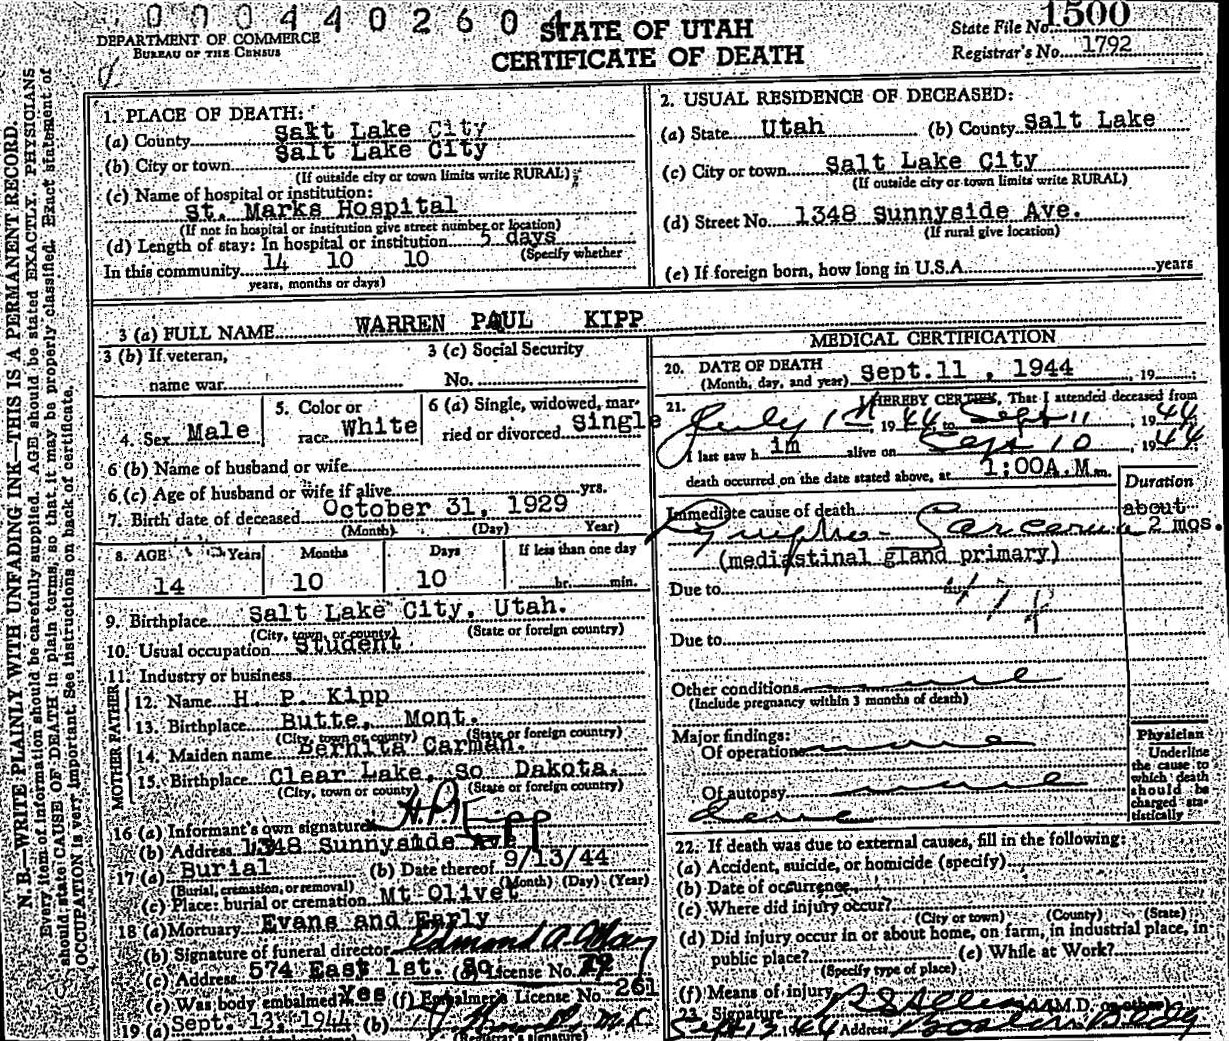 0 0 0 4 4 0 2 6 0 4
DEPARTMENT OF COMMERCE
BUREAU OF THE CENSUS
STATE OF UTAH
CERTIFICATE OF DEATH
State File No. 1500
Registrar's No. 1792
N. B.—WRITE PLAINLY WITH UNFADING INK—THIS IS A PERMANENT RECORD.
Every item of information should be carefully supplied. AGE should be stated EXACTLY. PHYSICIANS
should state CAUSE OF DEATH in plain terms, so that it may be properly classified. Exact statement of
OCCUPATION is very important. See instructions on back of certificate.
1. PLACE OF DEATH:
(a) County Salt Lake City
(b) City or town Salt Lake City
(If outside city or town limits write RURAL)
(c) Name of hospital or institution:
St. Marks Hospital
(If not in hospital or institution give street number or location)
(d) Length of stay: In hospital or institution 5 days
(Specify whether
In this community 14 10 10
years, months or days)
2. USUAL RESIDENCE OF DECEASED:
(a) State Utah (b) County Salt Lake
(c) City or town Salt Lake City
(If outside city or town limits write RURAL)
(d) Street No. 1348 Sunnyside Ave.
(If rural give location)
(e) If foreign born, how long in U.S.A. years
3 (a) FULL NAME WARREN PAUL KIPP
3 (b) If veteran,
name war
3 (c) Social Security
No.
4. Sex Male
5. Color or
race White
6 (a) Single, widowed, mar-
ried or divorced Single
6 (b) Name of husband or wife
6 (c) Age of husband or wife if alive yrs.
7. Birth date of deceased October 31, 1929
(Month) (Day) Year)
8. AGE Years Months Days If less than one day
14 10 10 hr. min.
9. Birthplace Salt Lake City, Utah.
(City, town, or county) (State or foreign country)
10. Usual occupation Student
11. Industry or business
FATHER
12. Name H. P. Kipp
13. Birthplace Butte, Mont.
(City, town or county) (State or foreign country)
MOTHER
14. Maiden name Bernita Carman.
15. Birthplace Clear Lake, So Dakota.
(City, town or county) (State or foreign country)
16 (a) Informant's own signature H. P. Kipp
(b) Address 1348 Sunnyside Ave
17 (a) Burial (b) Date thereof 9/13/44
(Burial, cremation, or removal) (Month) (Day) (Year)
(c) Place: burial or cremation Mt Olivet
18 (a) Mortuary Evans and Early
(b) Signature of funeral director Edmond A.
(c) Address 574 East 1st. So (d) License No. 79
(e) Was body embalmed? Yes (f) Embalmer's License No. 261
19 (a) Sept. 13, 1944 (b)
(Registrar's signature)
MEDICAL CERTIFICATION
20. DATE OF DEATH
(Month, day, and year) Sept. 11, 1944, 19
21. I HEREBY CERTIFY, That I attended deceased from
July 1st, 1944 to Sept 11, 1944
I last saw him alive on Sept 10, 1944
death occurred on the date stated above, at 1:00A.M.m.
Duration
Immediate cause of death
about
Lympho-Sarcoma 2 mos.
(mediastinal gland primary)
Due to
Due to
Other conditions none
(Include pregnancy within 3 months of death)
Major findings:
Of operations none
Of autopsy none
Physician
Underline
the cause to
which death
should be
charged sta-
tistically
22. If death was due to external causes, fill in the following:
(a) Accident, suicide, or homicide (specify)
(b) Date of occurrence
(c) Where did injury occur?
(City or town) (County) (State)
(d) Did injury occur in or about home, on farm, in industrial place, in
public place? (e) While at Work?
(Specify type of place)
(f) Means of injury
23. Signature M.D.
Sept 13 1944 Address Boston Bldg